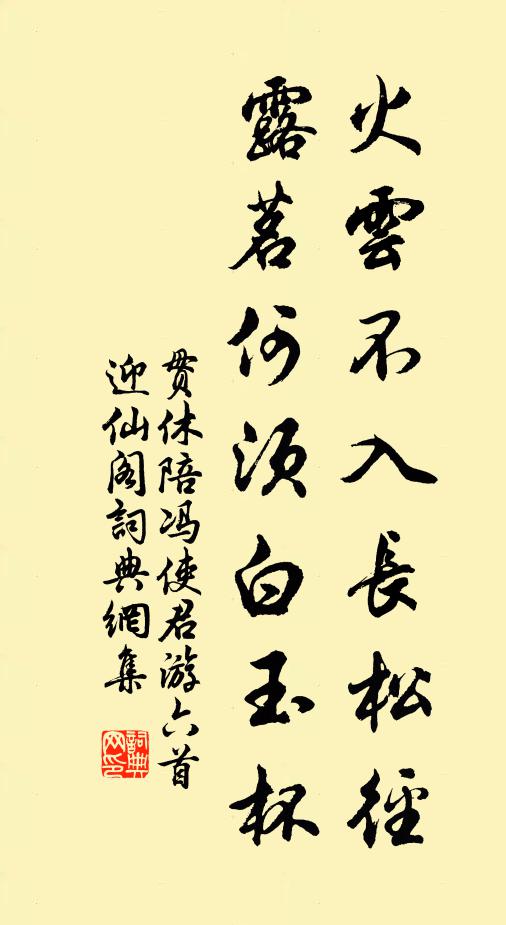 火雲不入長松徑
露茗何須白玉杯
贯休陪冯使君游六首
迎仙阁詞典網集
詞典網印